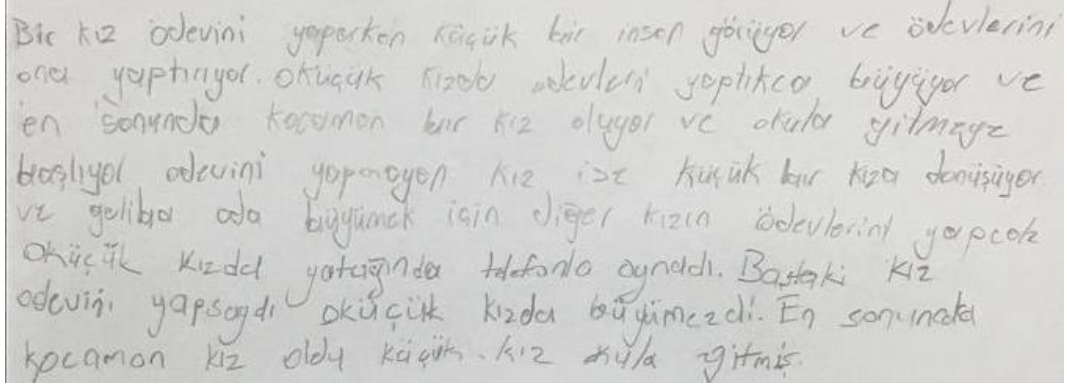 Bir kız ödevini yaparken küçük bir insan görüyor ve ödevlerini
ona yaptırıyor. oküçük kızda odevleri yaptıkca büyüyor ve
en sonunda kocaman bir kız oluyor ve okula gitmeye
başlıyor odevini yapmayan kız ise küçük bir kıza dönüşüyor.
ve galiba oda büyümek için diğer kızın ödevlerini yapcak
Oküçük kızda yatağında telefonla oynadı. Baştaki kız
odevini yapsaydı oküçük kızda büyümezdi. En sonunada
kocaman kız oldu küçük kız okula gitmiş.